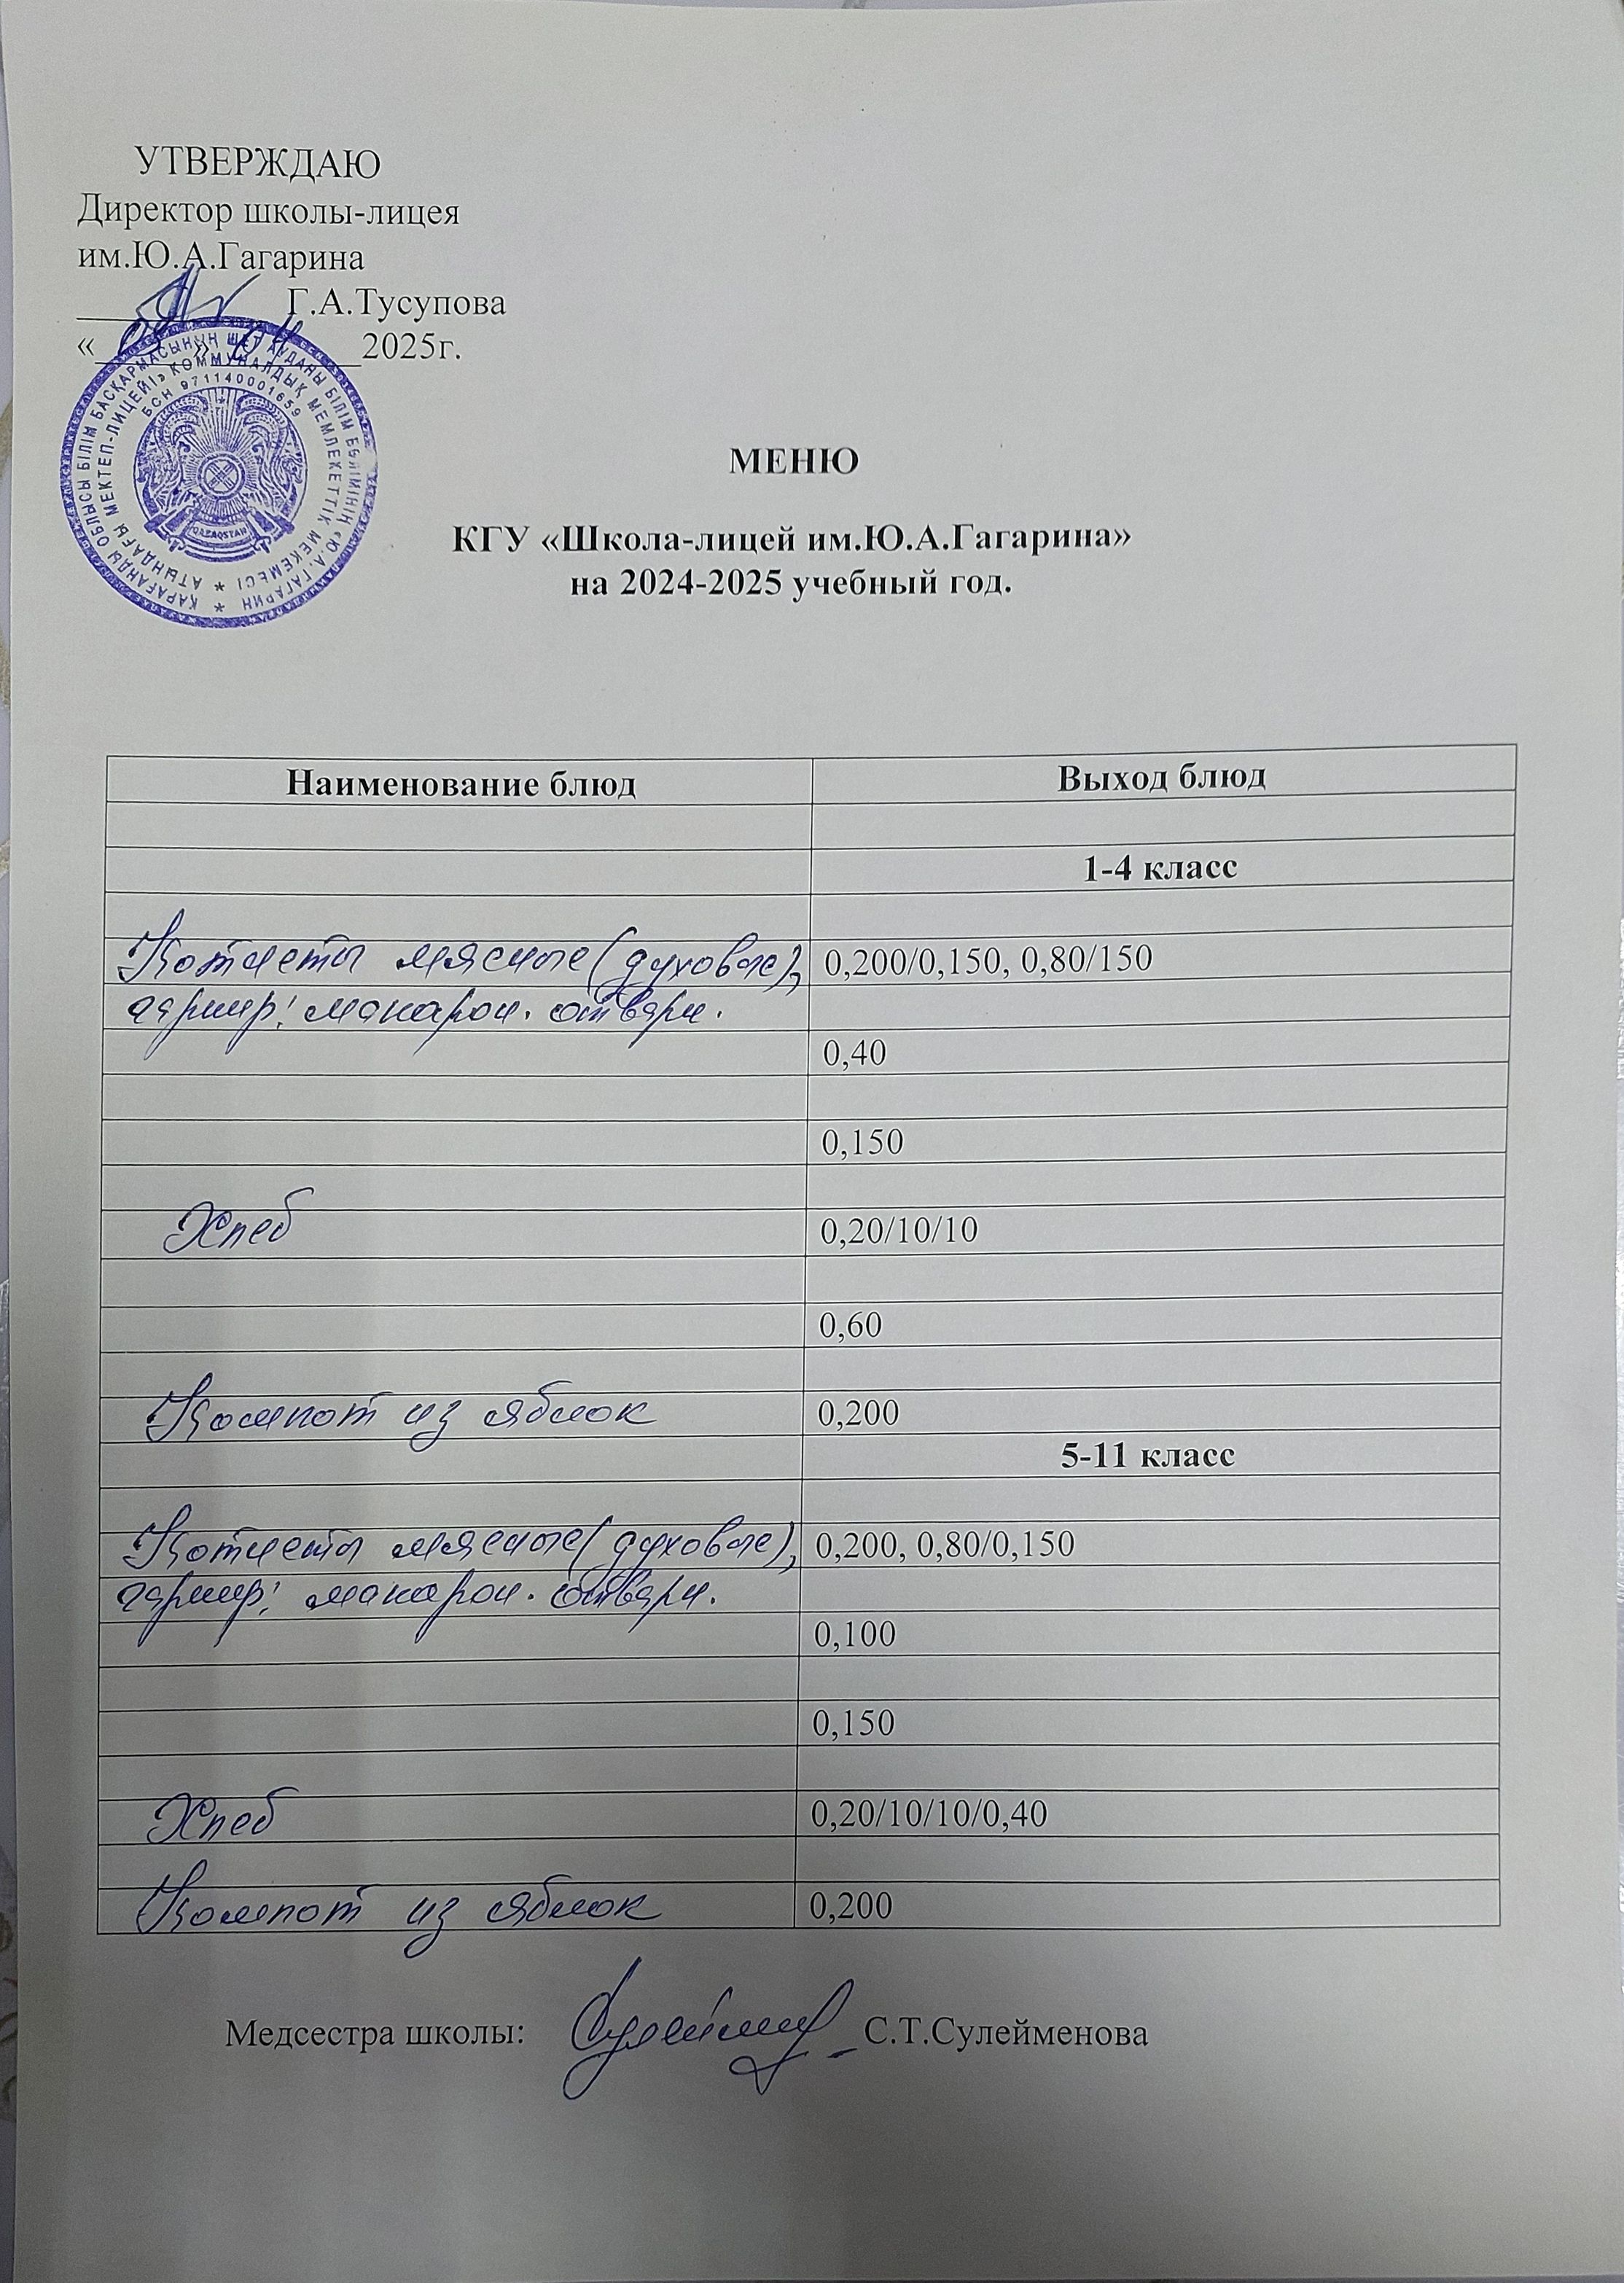 УТВЕРЖДАЮ
Директор школы-лицея
им.Ю.А.Гагарина
Г.А.Тусупова
« » 04 2025г.
ҚАРАҒАНДЫ ОБЛЫСЫ БІЛІМ БАСҚАРМАСЫНЫҢ ШЕТ АУДАНЫ БІЛІМ БӨЛІМІНІҢ «Ю.А.ГАГАРИН
АТЫНДАҒЫ МЕКТЕП-ЛИЦЕЙІ» КОММУНАЛДЫҚ МЕМЛЕКЕТТІК МЕКЕМЕСІ
БСН 971140001659
QAZAQSTAN
МЕНЮ
КГУ «Школа-лицей им.Ю.А.Гагарина»
на 2024-2025 учебный год.
Наименование блюд Выход блюд
1-4 класс
Котлеты мясные (духовые), 0,200/0,150, 0,80/150
гарнир: макарон. отварн.
0,40
0,150
Хлеб 0,20/10/10
0,60
Компот из яблок 0,200
5-11 класс
Котлеты мясные (духовые), 0,200, 0,80/0,150
гарнир: макарон. отварн.
0,100
0,150
Хлеб 0,20/10/10/0,40
Компот из яблок 0,200
Медсестра школы: С.Т.Сулейменова